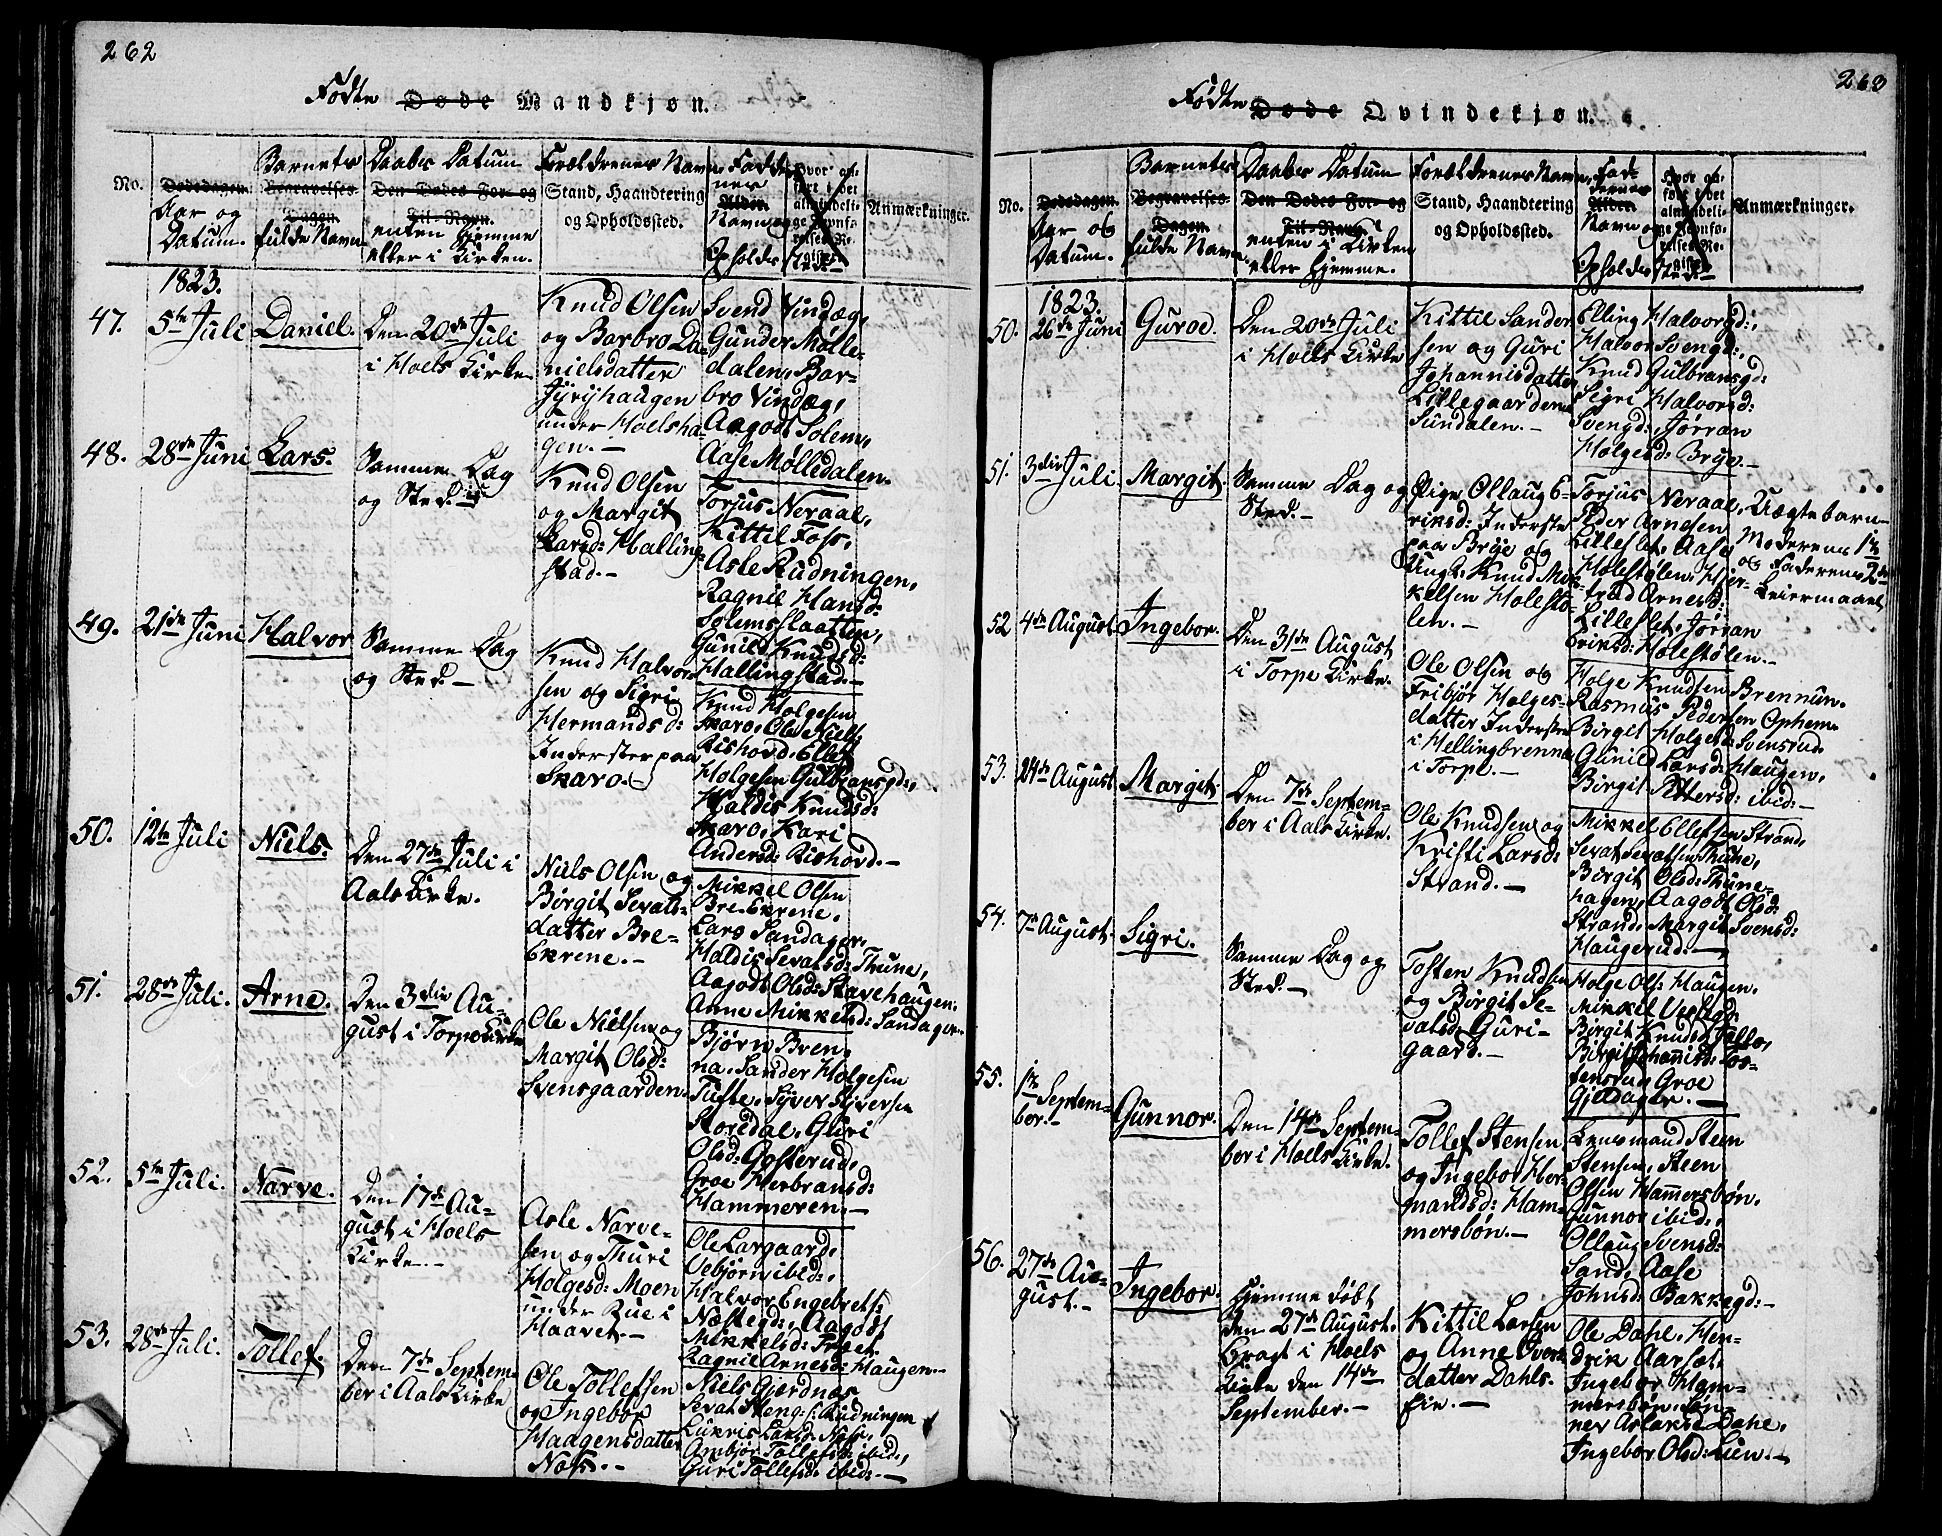 262
Fødte Døde Mandkjøn.
No.
Dødsdagen.
Aar og
Datum.
Barnets
Begravelses-
Dagen.
fulde Navn
Daabs Datum
Den Dødes For- og
Til-Navn.
enten hjemme
eller i Kirken.
Forældrenes Navn,
Stand, Haandtering
og Opholdssted.
Fadder-
nes
Alder.
Navn og
Opholds
sted.
Anmærkninger.
1823.
47.
5te Juli
Daniel.
Den 20de Juli
i Hoels Kirke
Knud Olsen
og Barbro Da-
nielsdatter
Jyryhaugen
under Hoelsha-
gen.-
Svend Vindæg,
Gunder Mølle-
dalen, Bar-
bro Vindæg,
Aagodt Solem,
Aase Mølledalen.
48.
28de Juni
Lars.
Samme Dag
og Sted.
Knud Olsen
og Margit
Larsd: Halling-
stad.-
Torjus Neraal,
Kittil Foss,
Asle Rudningen,
Ragnil Hansd:
Solemsslaatten,
Gunild Knudsd:
Hallingstad.-
49.
21de Juni
Halvor
Samme Dag
og Sted.-
Knud Halvor-
sen og Sigri
Hermandsd:
Inderster paa
Skaro.-
Knud Holgesen
Skaro, Ole Niels:
Rishovd, Ellef
Holgesen Gulbransgd:,
Haldis Knudsd:
Skaro, Kari
Andersd: Rishovd.-
50.
12te Juli
Niels.
Den 27de Juli i
Aals Kirke.
Niels Olsen og
Birgit Sevats-
datter Bre-
Ekrene.-
Mikkel Olsen
Bre-Ekrene,
Lars Sandager,
Haldis Sevatsd: Thune,
Aagodt Olsd: Stavehaugen.
Anne Mikkelsd: Sandager.
51.
28de Juli.
Arne.
Den 3die Au-
gust i Torpe Kirke
Ole Nielsen og
Margit Olsd:
Svensgaarden.
Bjørn Bren-
na, Sander Holgesen
Tufte, Syver Syversen
Storedal, Guri
Olsd: Gosterud,
Groe Herbransd:
Hammeren.-
52.
5te Juli.
Narve.
Den 17de Au-
gust i Hoels
Kirke.-
Asle Narve-
sen og Thuri
Holgesd: Moen
under Rue i
Haavet.-
Ole Largaard,
Vebjørn ibid:,
Halvor Engebrets:
Næstegd:, Aagodt
Mikkelsd:
Ragnil Arnesd: Haugen.-
53.
28de Juli.
Tollef.
Den 7de Septem-
ber i Aals Kirke
Ole Tollefsen
og Ingebor
Haagensdatter
Noss.-
Niels Gjerdnas
Sevat Steng: f: Rudningen
Lukris Larsd: Noss,
Ambjør Tollefsd: ibid:,
Guri Tollefsd: ibid:-
263
Fødte Døde Qvindekjøn.
No.
Dødsdagen.
Aar og
Datum.
Barnets
Begravelses-
Dagen.
fulde Navn.
Daabs Datum
Den Dødes For- og
Til-Navn.
enten i Kirken
eller hjemme.
Forældrenes Navn,
Stand, Haandtering
og Opholdssted.
Fad-
dernes
Alder.
Navn og
Opholds
sted.
Anmærkninger.
1823.
50.
26de Juni
Guroe.
Den 20de Juli
i Hoels Kirke
Kittil Sander
sen og Guri
Johannisdatter
Lillegaarden
Sundalen.-
Elling Halvorgd:,
Halvor Svengd:,
Knud Gulbransgd:
Sigri Halvorsd:
Svengd:, Jørran
Holgesd: Brye.-
51.
3die Juli.
Margit.
Samme Dag og
Sted.-
Pige Ollaug E-
riksd: Inderste
paa Brye og
Ungk: Knud Mik-
kelsen Holestø-
len.-
Torjus Neraal,
Peder Arnesen
Lilleslet, Aase
Holestølen, Hjer-
trud Arnesd:
Lilleslet, Jørran
Eriksd: Holestølen.-
Uægte barn-
Moderens 1te
og Faderens 2det
Leiermaal
52
4de August
Ingebor.
Den 31de August
i Torpe Kirke.
Ole Olsen og
Fribjør Holges-
datter Inderster
i Hellingbrenna
i Torpe.-
Holge Knudsen Brennun.
Rasmus Pedersen Ophem
Birgit Holgesd: Svensrud.
Gunild Larsd: Haugen,
Birgit Pettersd: ibid:-
53.
24de August
Margit
Den 7de Septem-
ber i Aals Kirke.
Ole Knudsen og
Kristi Larsd:
Strand.-
Mikkel Ellefsen Strand,
Sevat Sevatsen Thune,
Birgit Olsd: Thune-
hagen, Aagodt Olsd:
Strand, Margit Svensd:
Haugerud.-
54.
7de August.
Sigri.
Samme Dag og
Sted.-
Tosten Knudsen
og Birgit Se-
vatsd: Guri-
gaard.-
Holge Ols: Haugen,
Mikkel
Birgit Knudsd:
Birgit Johanisd: Tos-
tensrud, Groe
Gjeldager.-
55.
1te Septem-
ber.-
Gunnor.
Den 14de Septem-
ber i Hoels Kirke.
Tollef Stensen
og Ingebor Her-
mandsd: Ham-
mersbøn.-
Lensmand Steen
Stensen, Steen
Olsen Hammersbøn,
Gunnor ibid:,
Ollaug Svensd:
Sand, Aase
Johnsd: Bakkegd:-
56.
27de Au-
gust.-
Ingebor.
Hjemme døbt
den 27de August.
Bragt i Hoels
Kirke den 14de
September.-
Kittil Larsen
og Anne Øvers-
datter Dahls-
Eie.-
Ole Dahle, Hen-
drik Aarset,
Ingebor Ham-
mersbøn, Gun-
ner Aslaksd: Dahle,
Ingebor Olsd: Lien.-